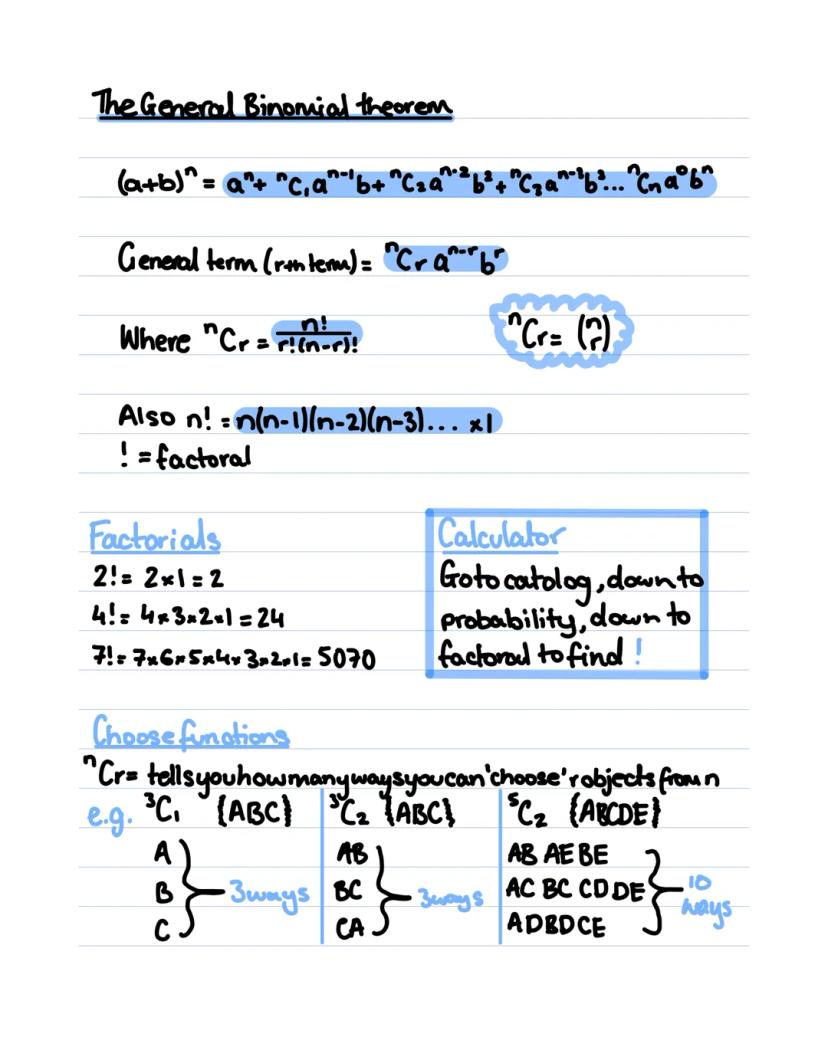 The General Binomial theorem
(a+b)ⁿ = aⁿ + ⁿC₁aⁿ⁻¹b + ⁿC₂aⁿ⁻²b² + ⁿC₃aⁿ⁻³b³... ⁿCₙa⁰bⁿ
General term (rth term) = ⁿCr aⁿ⁻ʳ bʳ
Where ⁿCr = n!/r!(n-r)!
ⁿCr = (n r)
Also n! = n(n-1)(n-2)(n-3)... ×1
! = factoral
Factorials
2! = 2×1 = 2
4! = 4×3×2×1 = 24
7! = 7×6×5×4×3×2×1 = 5070
Calculator
Go to catolog, down to
probability, down to
factoral to find !
Choose functions
ⁿCr = tells you how many ways you can 'choose' r objects from n
e.g. ³C₁ {ABC}
A
B
C
3 ways
³C₂ {ABC}
AB
BC
CA
3 ways
⁵C₂ {ABCDE}
AB AE BE
AC BC CD DE
AD BD CE
10
ways